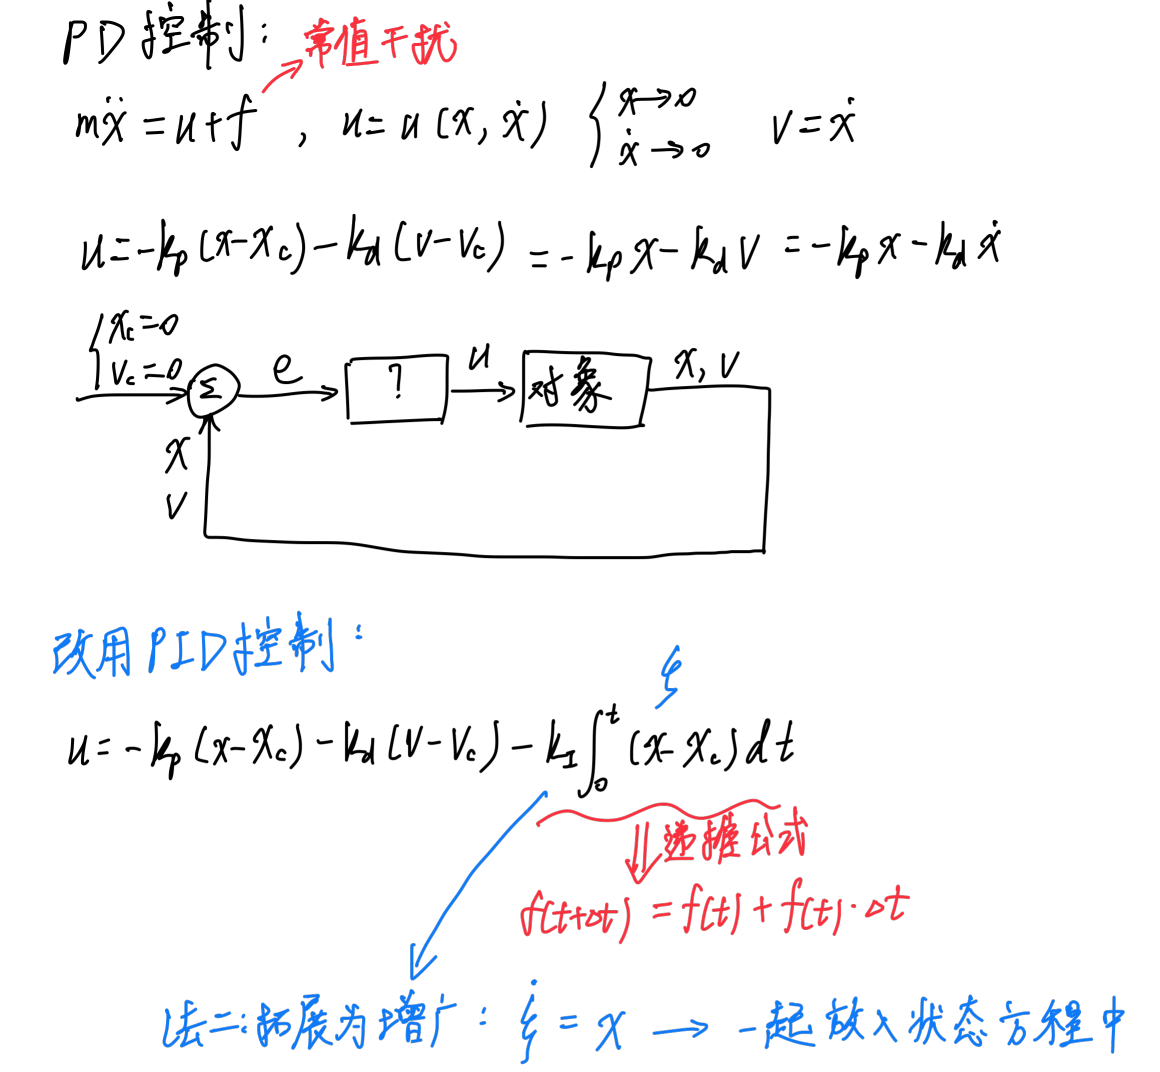 PD控制: 常值干扰
mẍ = u+f , u= u(x, ẋ) { x→0 ẋ→0 v=ẋ
u=-kp(x-xc)-kd(v-vc) = -kp x-kd v = -kp x-kd ẋ
{ xc=0
vc=0 Σ e ? u 对象 x, v
x
v
改用PID控制:
ξ
u= -kp(x-xc)-kd(v-vc)-kI∫₀ᵗ(x-xc)dt
⇓递推公式
f(t+Δt) = f(t) + f(t)·Δt
法二:拓展为增广: ξ̇ = x → 一起放入状态方程中